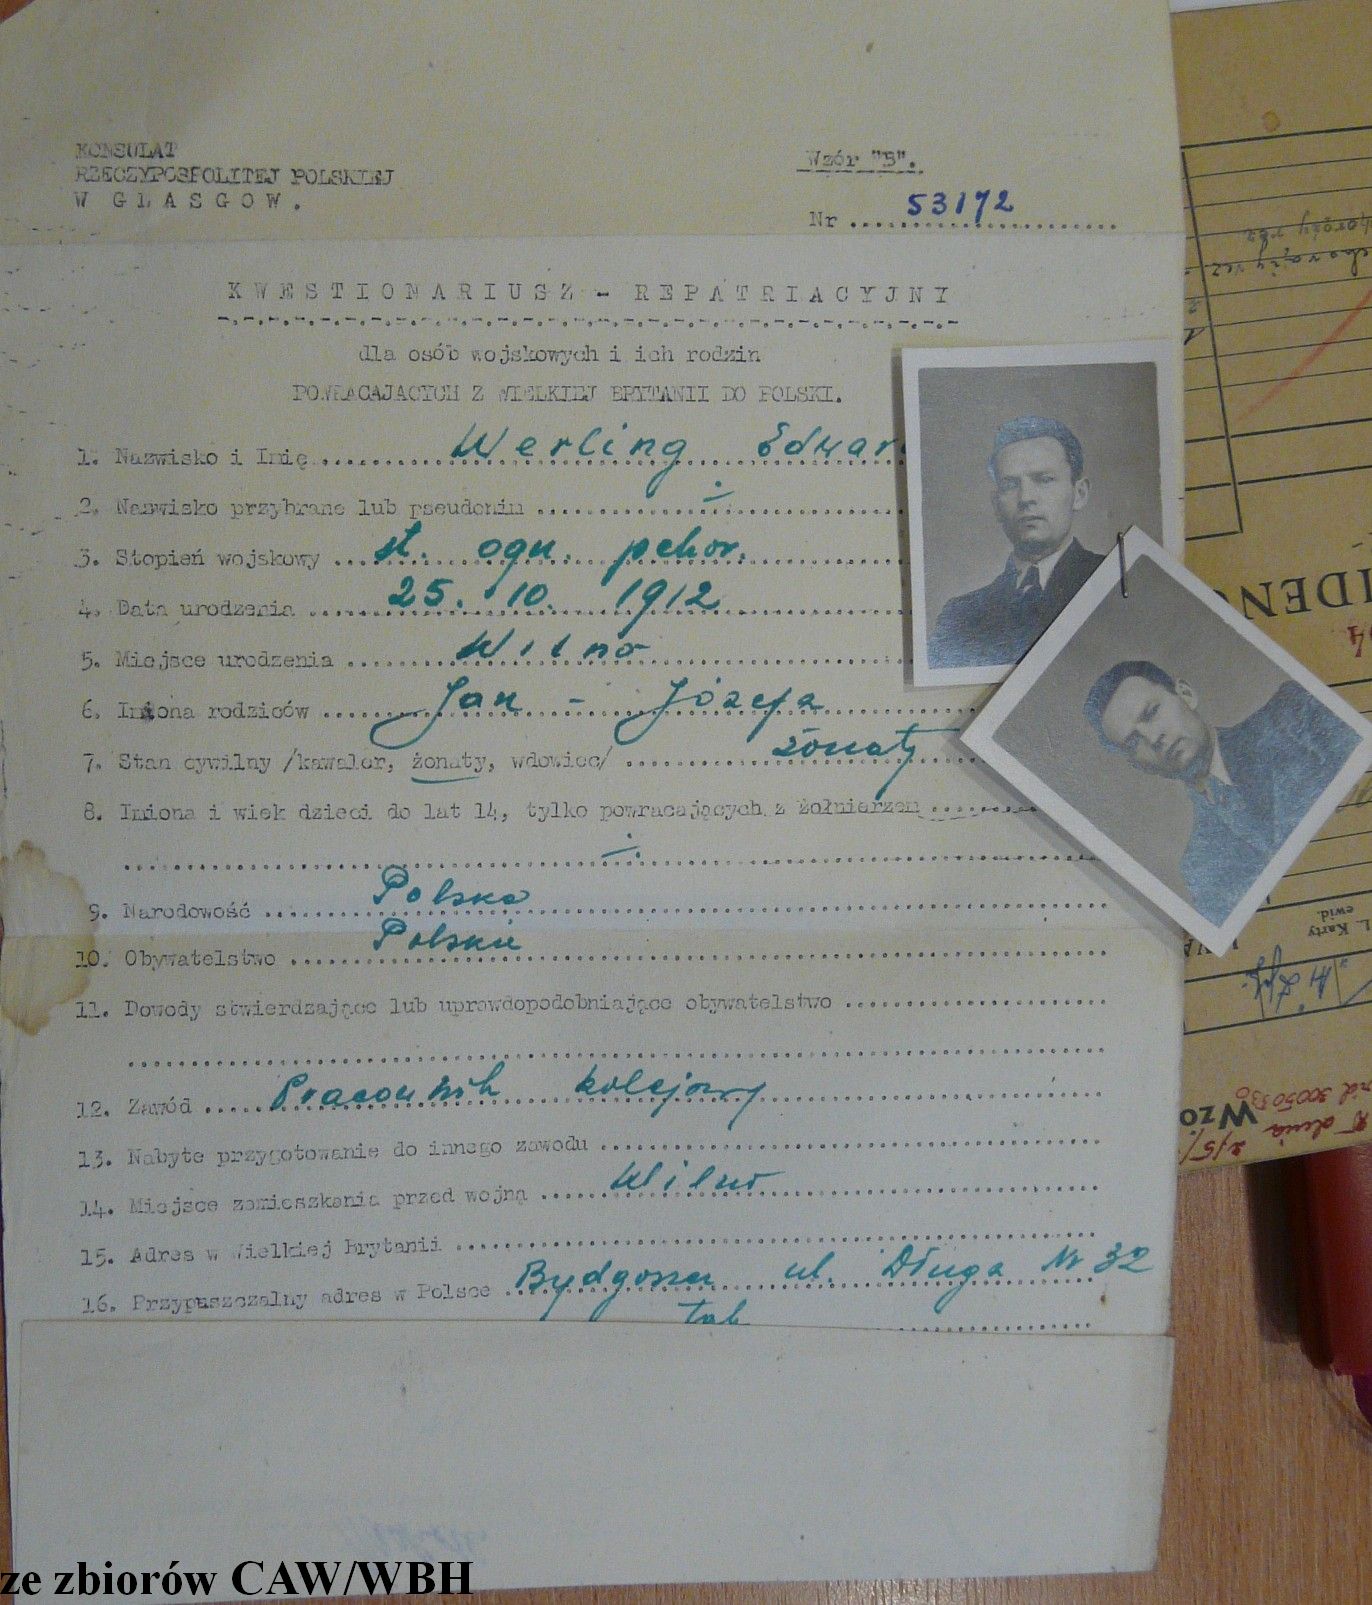 KONSULAT
RZECZYPOSPOLITEJ POLSKIEJ
W GLASGOW.
Wzór "B".
Nr .......... 53172
KWESTIONARIUSZ - REPATRIACYJNY
dla osób wojskowych i ich rodzin
POWRACAJACYCH Z WIELKIEJ BRYTANII DO POLSKI.
1. Nazwisko i Imię .......... Werling Edwar
2. Nazwisko przybrane lub pseudonim .......... -
3. Stopień wojskowy .......... st. ogn. pchor.
4. Data urodzenia .......... 25. 10. 1912
5. Miejsce urodzenia .......... Wilno
6. Imiona rodziców .......... Jan - Józefa
7. Stan cywilny /kawaler, żonaty, wdowiec/ .......... żonaty
8. Imiona i wiek dzieci do lat 14, tylko powracających z żołnierzem ..........
.......... -
9. Narodowość .......... Polska
10. Obywatelstwo .......... Polskie
11. Dowody stwierdzające lub uprawdopodobniające obywatelstwo ..........
..........
12. Zawód .......... Pracownik kolejowy
13. Nabyte przygotowanie do innego zawodu ..........
14. Miejsce zamieszkania przed wojną .......... Wilno
15. Adres w Wielkiej Brytanii ..........
16. Przypuszczalny adres w Polsce .......... Bydgoszcz ul. Długa Nr 32
tak
IDENC
L. Karty
ewid.
Wzo
ze zbiorów CAW/WBH